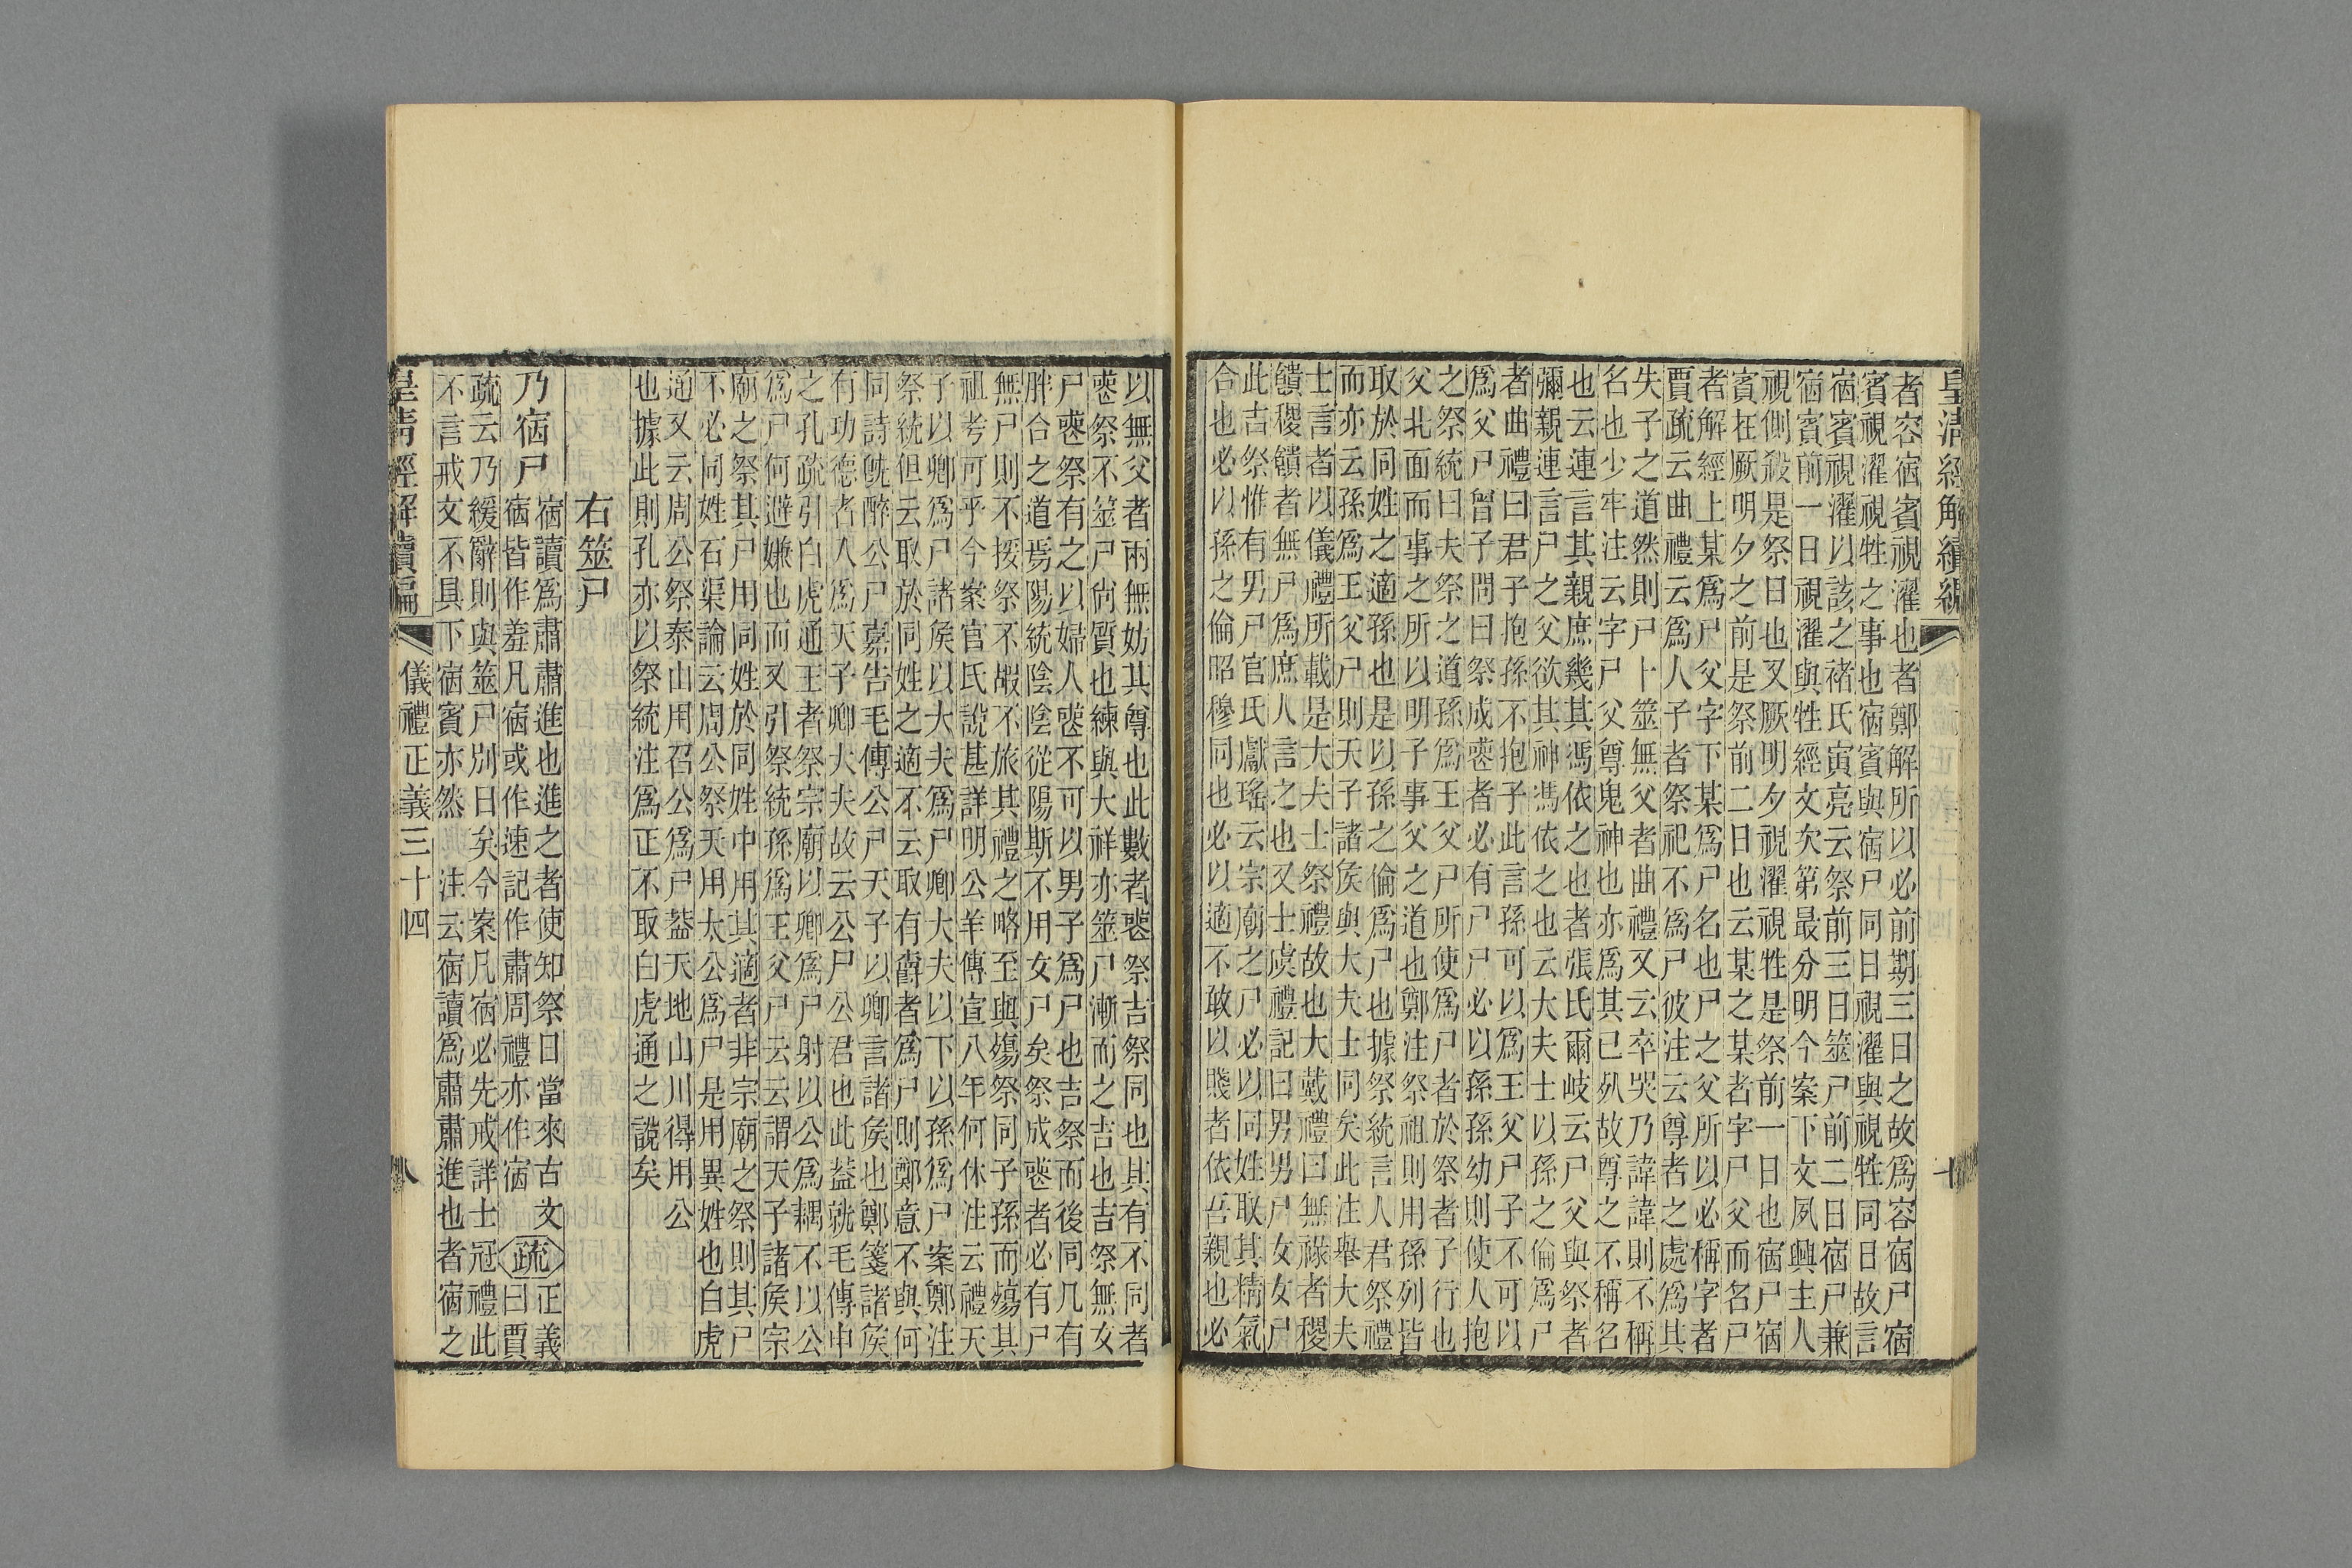 皇淸經解續編
者容宿賓視濯也者鄭解所以必前期三日之故爲容宿尸宿
賓視濯視牲之事也宿賓與宿尸同日視濯與視牲同日故言
宿賓視濯以該之褚氏寅亮云祭前三日筮尸前二日宿尸兼
宿賓前一日視濯與牲經文次第最分明今案下文夙興主人
視側殺是祭日也又厥明夕視濯視牲是祭前一日也宿尸宿
賓在厥明夕之前是祭前二日也云某之某者字尸父而名尸
者解經上某爲尸父字下某爲尸名也尸之父所以必稱字者
賈疏云曲禮云爲人子者祭祀不爲尸彼注云尊者之處爲其
失子之道然則尸卜筮無父者曲禮又云卒哭乃諱諱則不稱
名也少牢注云字尸父尊鬼神也亦爲其已死故尊之不稱名
也云連言其親庶幾其馮依之也者張氏爾岐云尸父與祭者
彌親連言尸之父欲其神馮依之也云大夫士以孫之倫爲尸
者曲禮曰君子抱孫不抱子此言孫可以爲王父尸子不可以
爲父尸曾子問曰祭成喪者必有尸尸必以孫孫幼則使人抱
之祭統曰夫祭之道孫爲王父尸所使爲尸者於祭者子行也
父北面而事之所以明子事父之道也鄭注祭祖則用孫列皆
取於同姓之適孫也是以孫之倫爲尸也據祭統言人君祭禮
而亦云孫爲王父尸則天子諸侯與大夫士同矣此注舉大夫
士言者以儀禮所載是大夫士祭禮故也大戴禮曰無祿者稷
饋稷饋者無尸爲庶人言之也又士虞禮記曰男男尸女女尸
此吉祭惟有男尸官氏獻瑤云宗廟之尸必以同姓取其精氣
合也必以孫之倫昭穆同也必以適不敢以賤者依吾親也必
十
以無父者兩無妨其尊也此數者喪祭吉祭同也其有不同者
喪祭不筮尸尙質也練與大祥亦筮尸漸而之吉也吉祭無女
尸喪祭有之以婦人喪不可以男子爲尸也吉祭而後同几有
胖合之道焉陽統陰陰從陽斯不用女尸矣祭成喪者必有尸
無尸則不授祭不嘏不旅其禮之略至與殤祭同子孫而殤其
祖考可乎今案官氏說甚詳明公羊傳宣八年何休注云禮天
子以卿爲尸諸侯以大夫爲尸卿大夫以下以孫爲尸案鄭注
祭統但云取於同姓之適不云取有爵者爲尸則鄭意不與何
同詩旣醉公尸嘉告毛傳公尸天子以卿言諸侯也鄭箋諸侯
有功德者入爲天子卿大夫故云公尸公君也此蓋就毛傳申
之孔疏引白虎通王者祭宗廟以卿爲尸射以公爲耦不以公
爲尸何避嫌也而又引祭統孫爲王父尸云云謂天子諸侯宗
廟之祭其尸用同姓於同姓中用其適者非宗廟之祭則其尸
不必同姓石渠論云周公祭天用太公爲尸是用異姓也白虎
通又云周公祭泰山用召公爲尸蓋天地山川得用公
也據此則孔亦以祭統注爲正不取白虎通之說矣
右筮尸
乃宿尸
宿讀爲肅肅進也進之者使知祭日當來古文
宿皆作羞凡宿或作速記作肅周禮亦作宿
疏
正義
曰賈
疏云乃緩辭則與筮尸別日矣今案凡宿必先戒詳士冠禮此
不言戒文不具下宿賓亦然 注云宿讀爲肅肅進也者宿之
皇淸經解續編
儀禮正義三十四
八